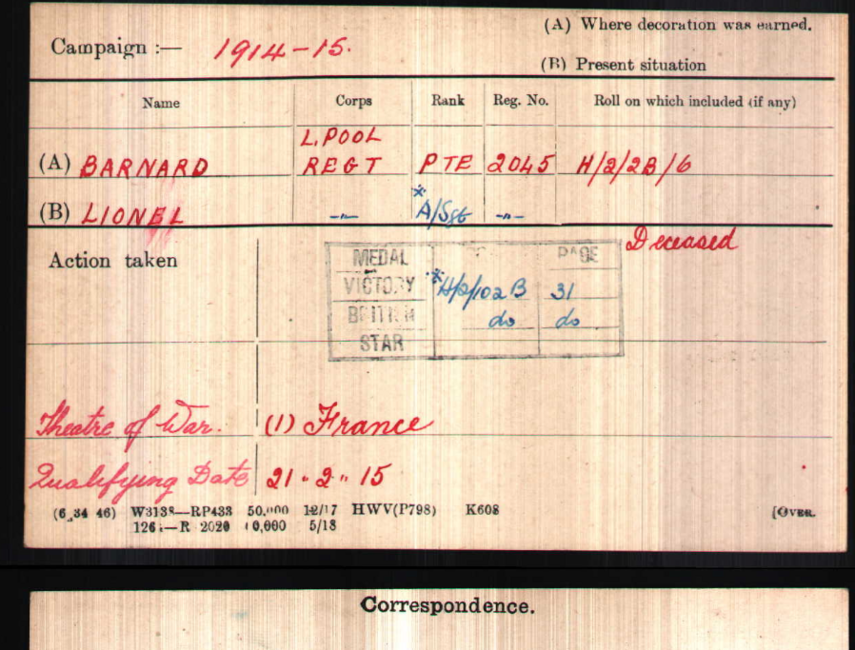 (A) Where decoration was earned.
Campaign :— 1914-15.
(B) Present situation
Name Corps Rank Reg. No. Roll on which included (if any)
L.POOL
(A) BARNARD REGT PTE 2045 H/2/2B/6
(B) LIONEL —"— * A/Sgt —"—
Deceased
Action taken
MEDAL PAGE
VICTORY * H/2/102 B 31
BRITISH do do
STAR
Theatre of War. (1) France
Qualifying Date 21 . 2 " 15
(6 34 46) W3138—RP433 50,000 12/17 HWV(P798) K608 [OVER.
—R 2020 5/18
Correspondence.